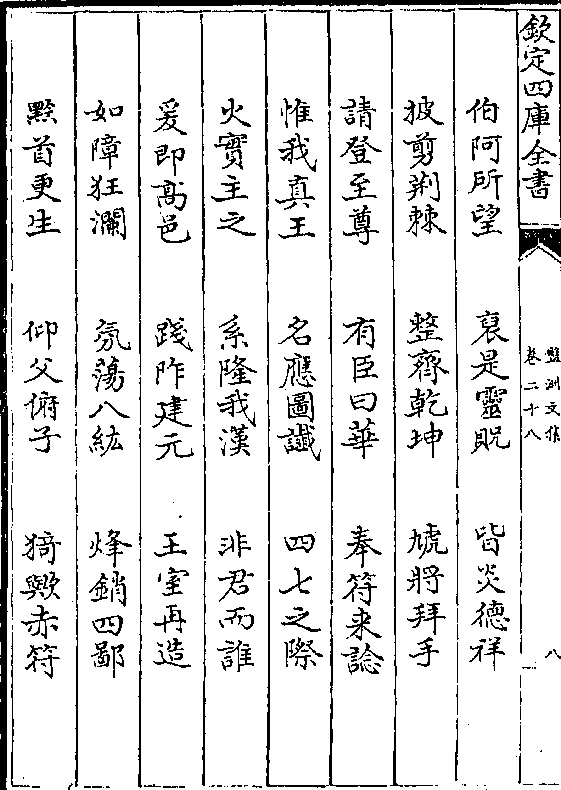 欽定四庫全書
盤洲文集
卷二十八
八
伯阿所望　裒是靈貺　皆炎德祥
披剪荆棘　整齊乾坤　虓將拜手
請登至尊　有臣曰華　奉符来諗
惟我真王　名應圖讖　四七之際
火實主之　系隆我漢　非君而誰
爰即髙邑　踐阼建元　王室再造
如障狂瀾　氛蕩八紘　烽銷四鄙
黔首更生　仰父俯子　猗歟赤符